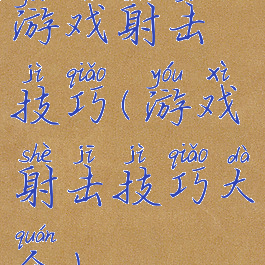 游戏射击
jì qiǎo yóu xì
技巧(游戏
shè jī jì qiǎo dà
射击技巧大
quán
全)